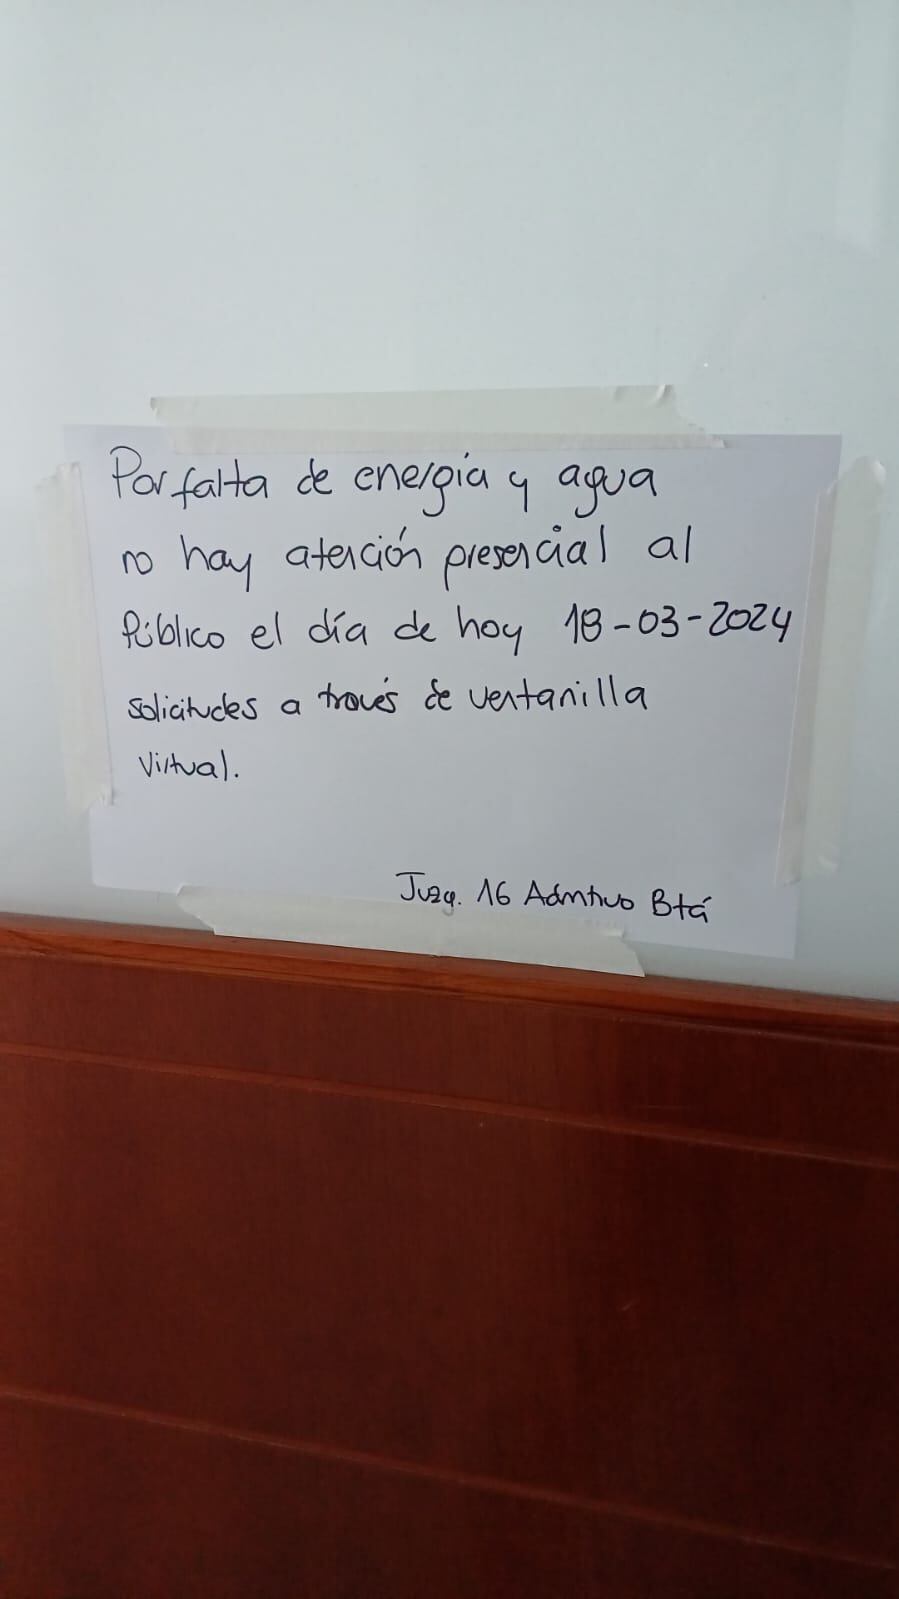 Por falta de energía y agua
no hay atención presencial al
Público el día de hoy 18-03-2024
solicitudes a través de ventanilla
virtual.
Juzg. 16 Admtivo Btá